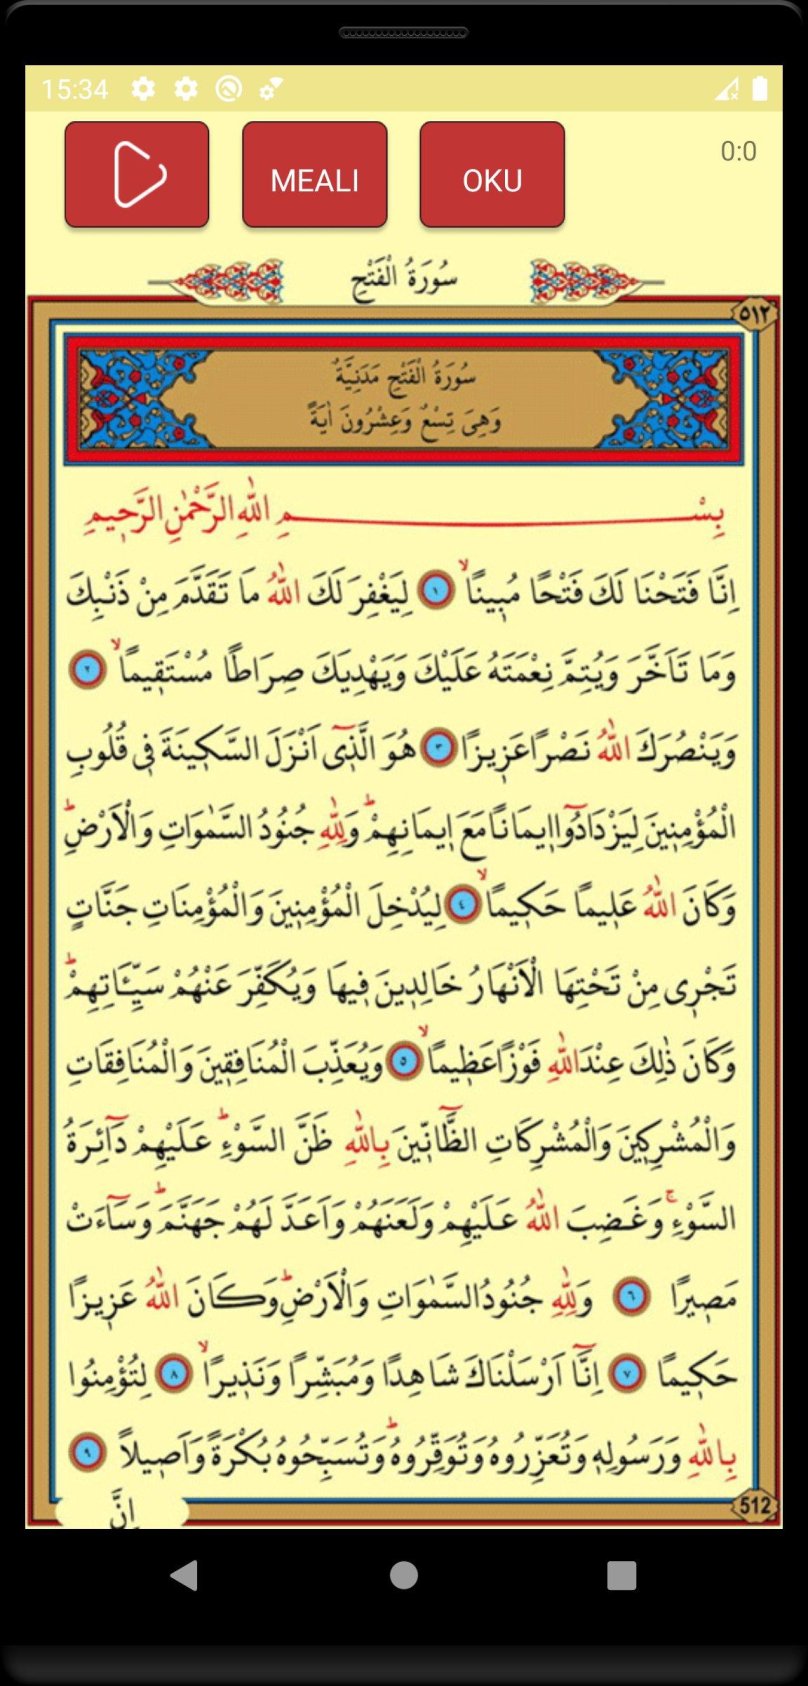 15:34
MEALI
OKU
0:0
سُورَةُ الْفَتْحِ
٥١٢
سُورَةُ الْفَتْحِ مَدَنِيَّةٌ
وَهِىَ تِسْعٌ وَعِشْرُونَ اٰيَةً
بِسْمِ اللّٰهِ الرَّحْمٰنِ الرَّحٖيمِ
اِنَّا فَتَحْنَا لَكَ فَتْحًا مُبٖينًاۙ ١ لِيَغْفِرَ لَكَ اللّٰهُ مَا تَقَدَّمَ مِنْ ذَنْبِكَ
وَمَا تَاَخَّرَ وَيُتِمَّ نِعْمَتَهُ عَلَيْكَ وَيَهْدِيَكَ صِرَاطًا مُسْتَقٖيمًاۙ ٢
وَيَنْصُرَكَ اللّٰهُ نَصْرًا عَزٖيزًا ٣ هُوَ الَّذٖٓى اَنْزَلَ السَّكٖينَةَ فٖى قُلُوبِ
الْمُؤْمِنٖينَ لِيَزْدَادُٓوا اٖيمَانًا مَعَ اٖيمَانِهِمْؕ وَلِلّٰهِ جُنُودُ السَّمٰوَاتِ وَالْاَرْضِؕ
وَكَانَ اللّٰهُ عَلٖيمًا حَكٖيمًاۙ ٤ لِيُدْخِلَ الْمُؤْمِنٖينَ وَالْمُؤْمِنَاتِ جَنَّاتٍ
تَجْرٖى مِنْ تَحْتِهَا الْاَنْهَارُ خَالِدٖينَ فٖيهَا وَيُكَفِّرَ عَنْهُمْ سَيِّـَٔاتِهِمْؕ
وَكَانَ ذٰلِكَ عِنْدَ اللّٰهِ فَوْزًا عَظٖيمًاۙ ٥ وَيُعَذِّبَ الْمُنَافِقٖينَ وَالْمُنَافِقَاتِ
وَالْمُشْرِكٖينَ وَالْمُشْرِكَاتِ الظَّٓانّٖينَ بِاللّٰهِ ظَنَّ السَّوْءِؕ عَلَيْهِمْ دَٓائِرَةُ
السَّوْءِۚ وَغَضِبَ اللّٰهُ عَلَيْهِمْ وَلَعَنَهُمْ وَاَعَدَّ لَهُمْ جَهَنَّمَؕ وَسَٓاءَتْ
مَصٖيرًا ٦ وَلِلّٰهِ جُنُودُ السَّمٰوَاتِ وَالْاَرْضِؕ وَكَانَ اللّٰهُ عَزٖيزًا
حَكٖيمًا ٧ اِنَّٓا اَرْسَلْنَاكَ شَاهِدًا وَمُبَشِّرًا وَنَذٖيرًاۙ ٨ لِتُؤْمِنُوا
بِاللّٰهِ وَرَسُولِهٖ وَتُعَزِّرُوهُ وَتُوَقِّرُوهُؕ وَتُسَبِّحُوهُ بُكْرَةً وَاَصٖيلًا ٩
اِنَّ
512